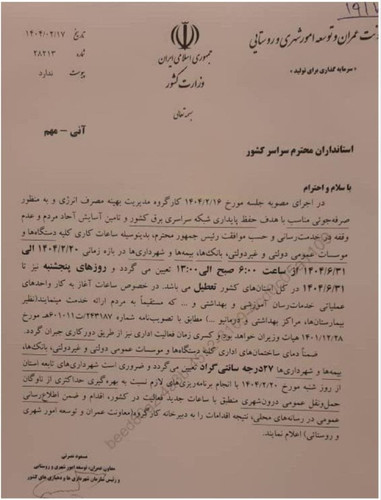 معاونت عمران و توسعه امور شهری و روستایی
«سرمایه گذاری برای تولید»
جمهوری اسلامی ایران
وزارت کشور
تاریخ ۱۴۰۴/۰۲/۱۷
شماره ۲۸۲۱۳
پیوست ندارد
بسمه تعالی
آنی - مهم
استانداران محترم سراسر کشور
با سلام و احترام
در اجرای مصوبه جلسه مورخ ۱۴۰۴/۲/۱۶ کارگروه مدیریت بهینه مصرف انرژی و به منظور
صرفه‌جوئی مناسب با هدف حفظ پایداری شبکه سراسری برق کشور و تامین آسایش آحاد مردم و عدم
وقفه در خدمت‌رسانی و حسب موافقت رئیس جمهور محترم، بدینوسیله ساعات کاری کلیه دستگاه‌ها و
موسسات عمومی دولتی و غیردولتی، بانک‌ها، بیمه‌ها و شهرداری‌ها در بازه زمانی ۱۴۰۴/۲/۲۰ الی
۱۴۰۴/۶/۳۱ از ساعت ۶:۰۰ صبح الی ۱۳:۰۰ تعیین می گردد و روزهای پنجشنبه نیز تا
۱۴۰۴/۶/۳۱ در کل استان‌های کشور تعطیل می باشد. در خصوص ساعات آغاز به کار واحدهای
عملیاتی خدمات‌رسان آموزشی و بهداشتی و ... که مستقیماً به مردم ارائه خدمت مینمایند(نظیر
بیمارستان‌ها، مراکز بهداشتی و درمانی و ...) مطابق با تصویب‌نامه شماره
۱۴۰۱/۱۲/۲۸ هیات وزیران خواهد بود و کسری زمان فعالیت اداری نیز از طریق دورکاری جبران گردد.
ضمناً دمای ساختمان‌های اداری کلیه دستگاه‌ها و موسسات عمومی دولتی و غیردولتی، بانک‌ها،
بیمه‌ها و شهرداری‌ها ۲۷درجه سانتی‌گراد تعیین می‌گردد و ضروری است شهرداری‌های تابعه استان
از روز شنبه مورخ ۱۴۰۴/۲/۲۰ با انجام برنامه‌ریزی‌های لازم نسبت به بهره‌گیری حداکثری از ناوگان
حمل‌ونقل عمومی درون‌شهری منطبق با ساعات جدید فعالیت در کشور، اقدام و ضمن اطلاع‌رسانی
عمومی در رسانه‌های محلی، نتیجه اقدامات را به دبیرخانه کارگروه(معاونت عمران و توسعه امور شهری
و روستائی) اعلام نمایند.
معاون عمران، توسعه امور شهری و روستایی
و رئیس سازمان شهرداری ها و دهیاری های کشور